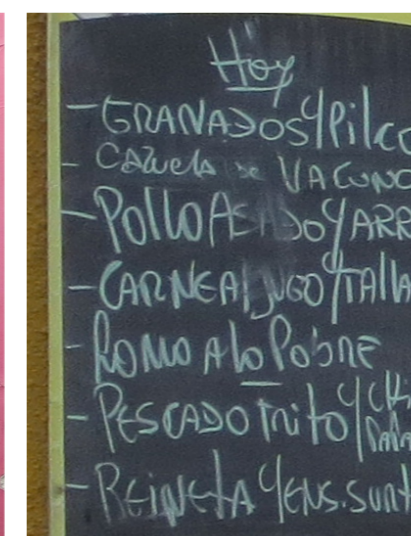 Hoy
- GRANADOS Y Pilco
- Cazuela de VACUNO
- POLLO ASADO Y ARR
- CARNE AL JUGO Y TALLA
- LOMO A lo PobRE
- PESCADO FRITO Y CHi
- REINETA Y ENS. SURT